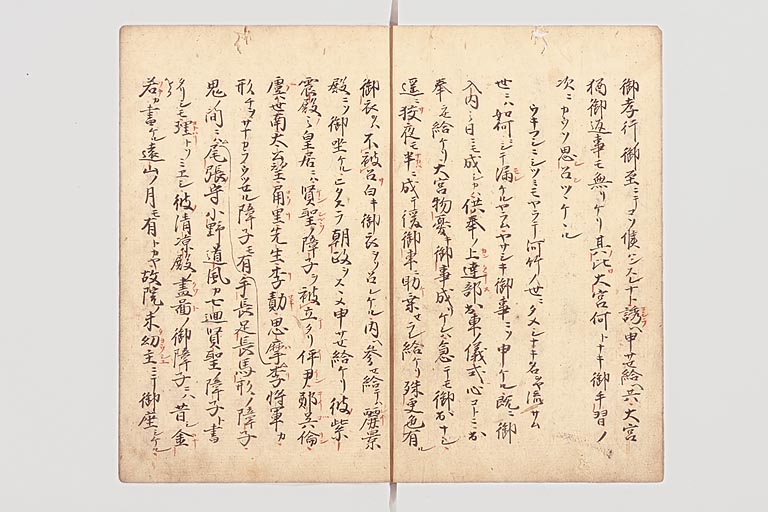 御孝行ノ御至ニテコソ候ハンスレナト誘ヘ申サセ給ヘ共大宮
猶御返事モ無リケリ其比大宮何トナキ御手習ノ
次ニカクソ思召ツヽケル
ウキフシニシツミモヤラテ河竹ノ世ニタメシナキ名ヲヤ流サム
世ニハ如何ニシテ漏ケルヤラムヤサシキ御事ニソ申ケル既ニ御
入内ノ日ニモ成シカハ供奉ノ上達部出車ノ儀式心コトニ出
奉ラセ給ケリ大宮物憂キ御事成ケレハ急テモ御出ナシ
遥ニ狡夜モ半ニ成テ後御車ニ助乗セラレ給ケリ殊更色有ル
御衣ヲハ不被召白キ御衣ヲソ召レケル内ヘ参セ給テハ麗景
殿ニソ御坐ケルヒタスラ朝政ヲスヽメ申サセ給ケリ彼紫
震殿ノ皇居ニハ賢聖ノ障子ヲ被立タリ伊尹鄭吾倫
虞世南太公望甪里先生李勣思摩李将軍カ
形チヲサナカラウツセル障子モ有手長足長馬形ノ障子
鬼ノ間ニハ尾張守小野ノ道風カ七廻賢聖ノ障子ト書
ケルモ理トソミエシ彼清凉殿ノ畫圖ノ御障子ニハ昔シ金
岩カ畫ケル遠山ノ月モ有トカヤ故院ノ未幼主ニテ御座シケル